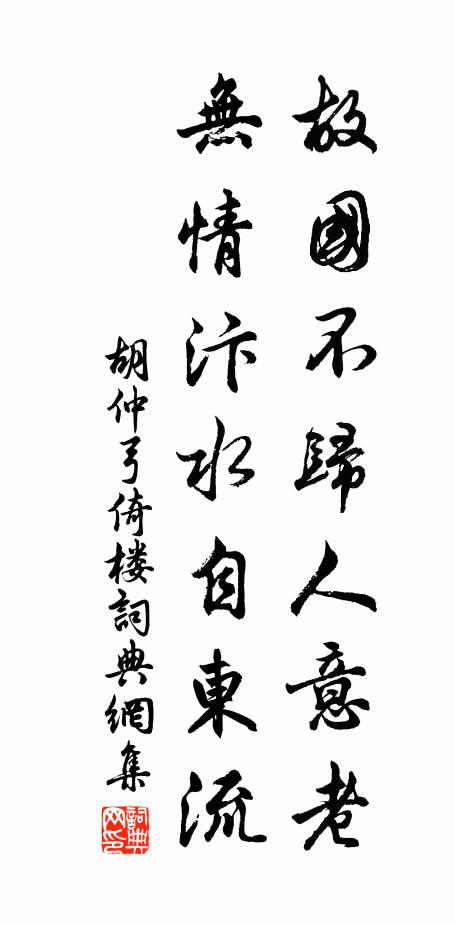 故國不歸人意老
無情汴水自東流
胡仲弓倚楼詞典網集
詞典
网印